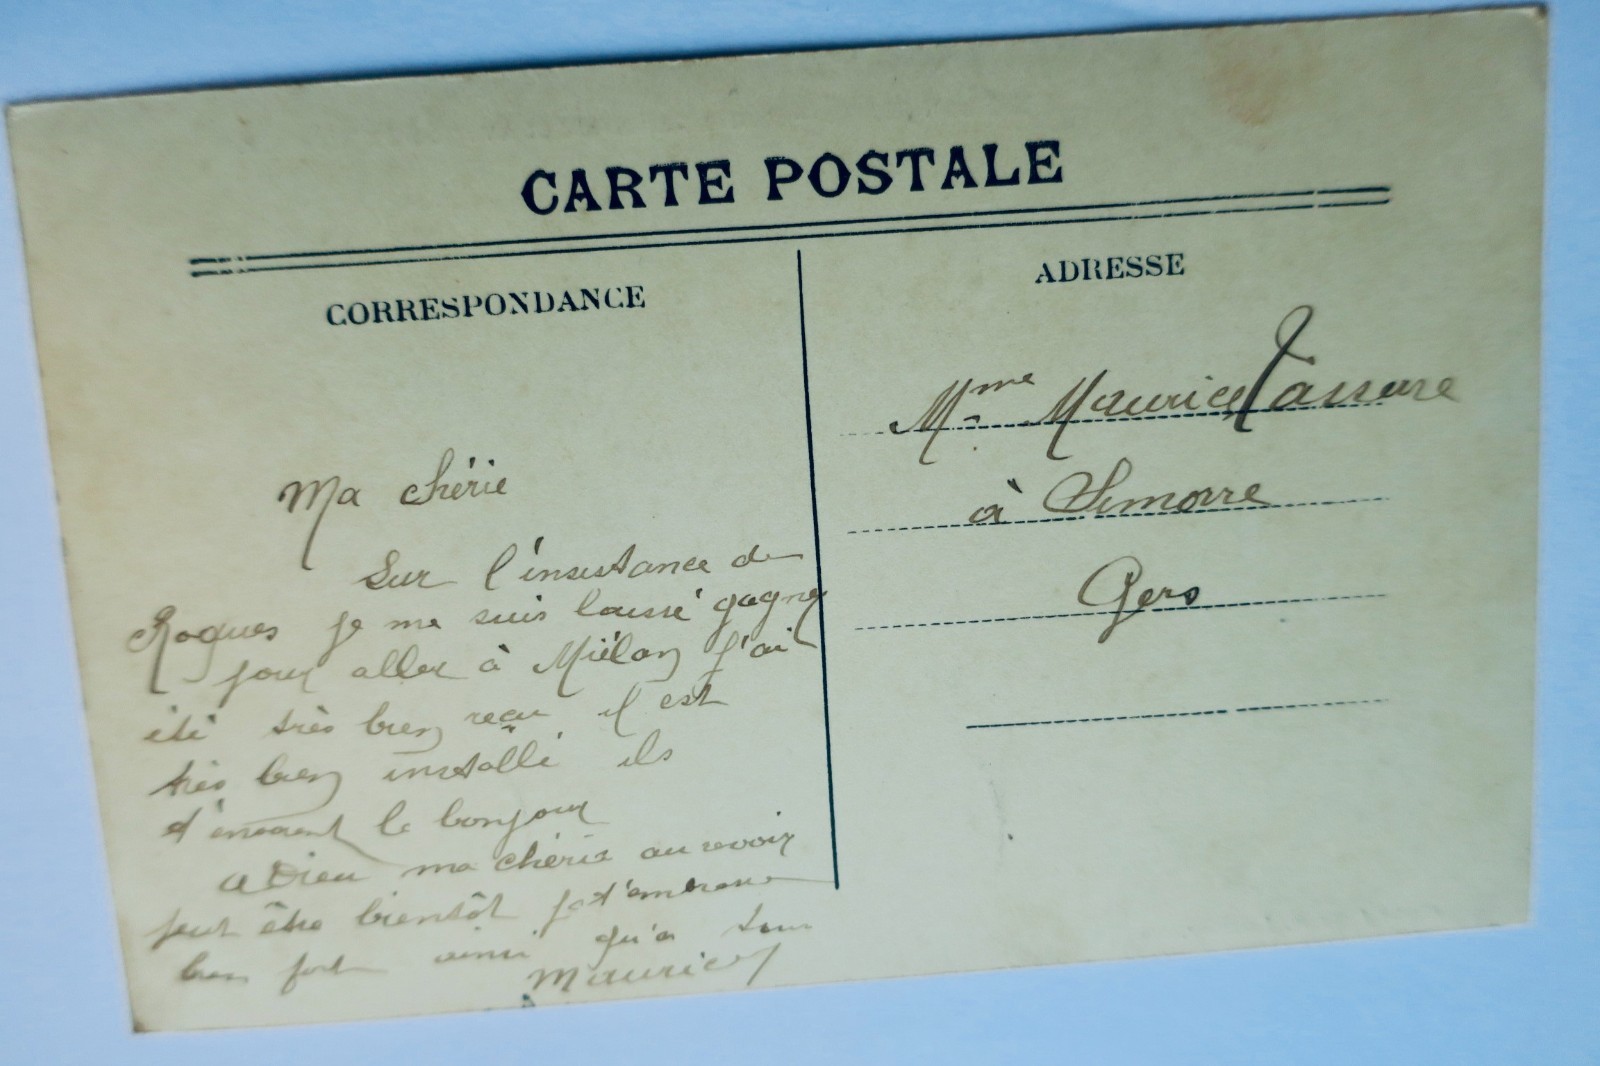 CARTE POSTALE
CORRESPONDANCE
Ma chérie
Sur l'insistance de
Roques je me suis laissé gagner
pour aller à Miélan j'ai
été très bien reçu il est
très bien installé ils
t'envoient le bonjour
adieu ma chérie au revoir
peut être bientôt je t'embrasse
bien fort ainsi qu'a tous
Maurice
ADRESSE
Mme Maurice
à Simorre
Gers